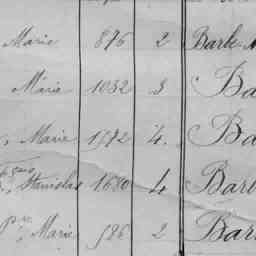 Marie 876 2 Barle
Marie 1032 3 Ba
Marie 1572 4. Ba
Stanislas 1680 4 Barl
Marie 586 2 Bar